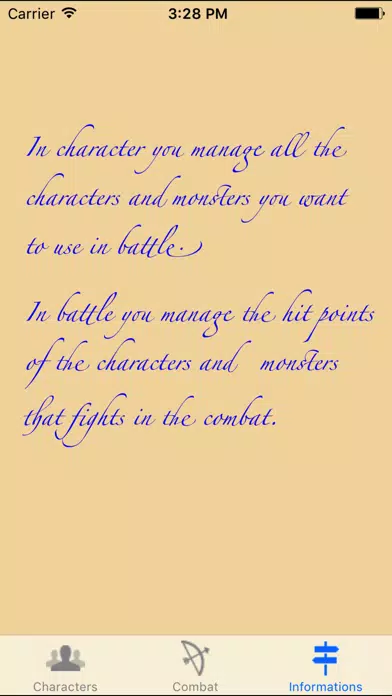 Carrier 3:28 PM
In character you manage all the
characters and monsters you want
to use in battle.
In battle you manage the hit points
of the characters and monsters
that fights in the combat.
Characters Combat Informations